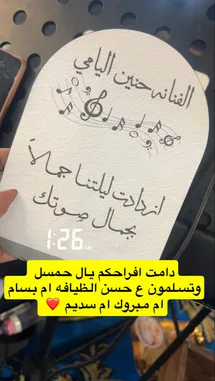 الفنانه حنين اليامي
ازدادت ليلتنا جمالاً
بجمال صوتك
1:26
دامت افراحكم يال حمسل
وتسلمون ع حسن الظيافه ام بسام
ام مبروك ام سديم ❤️